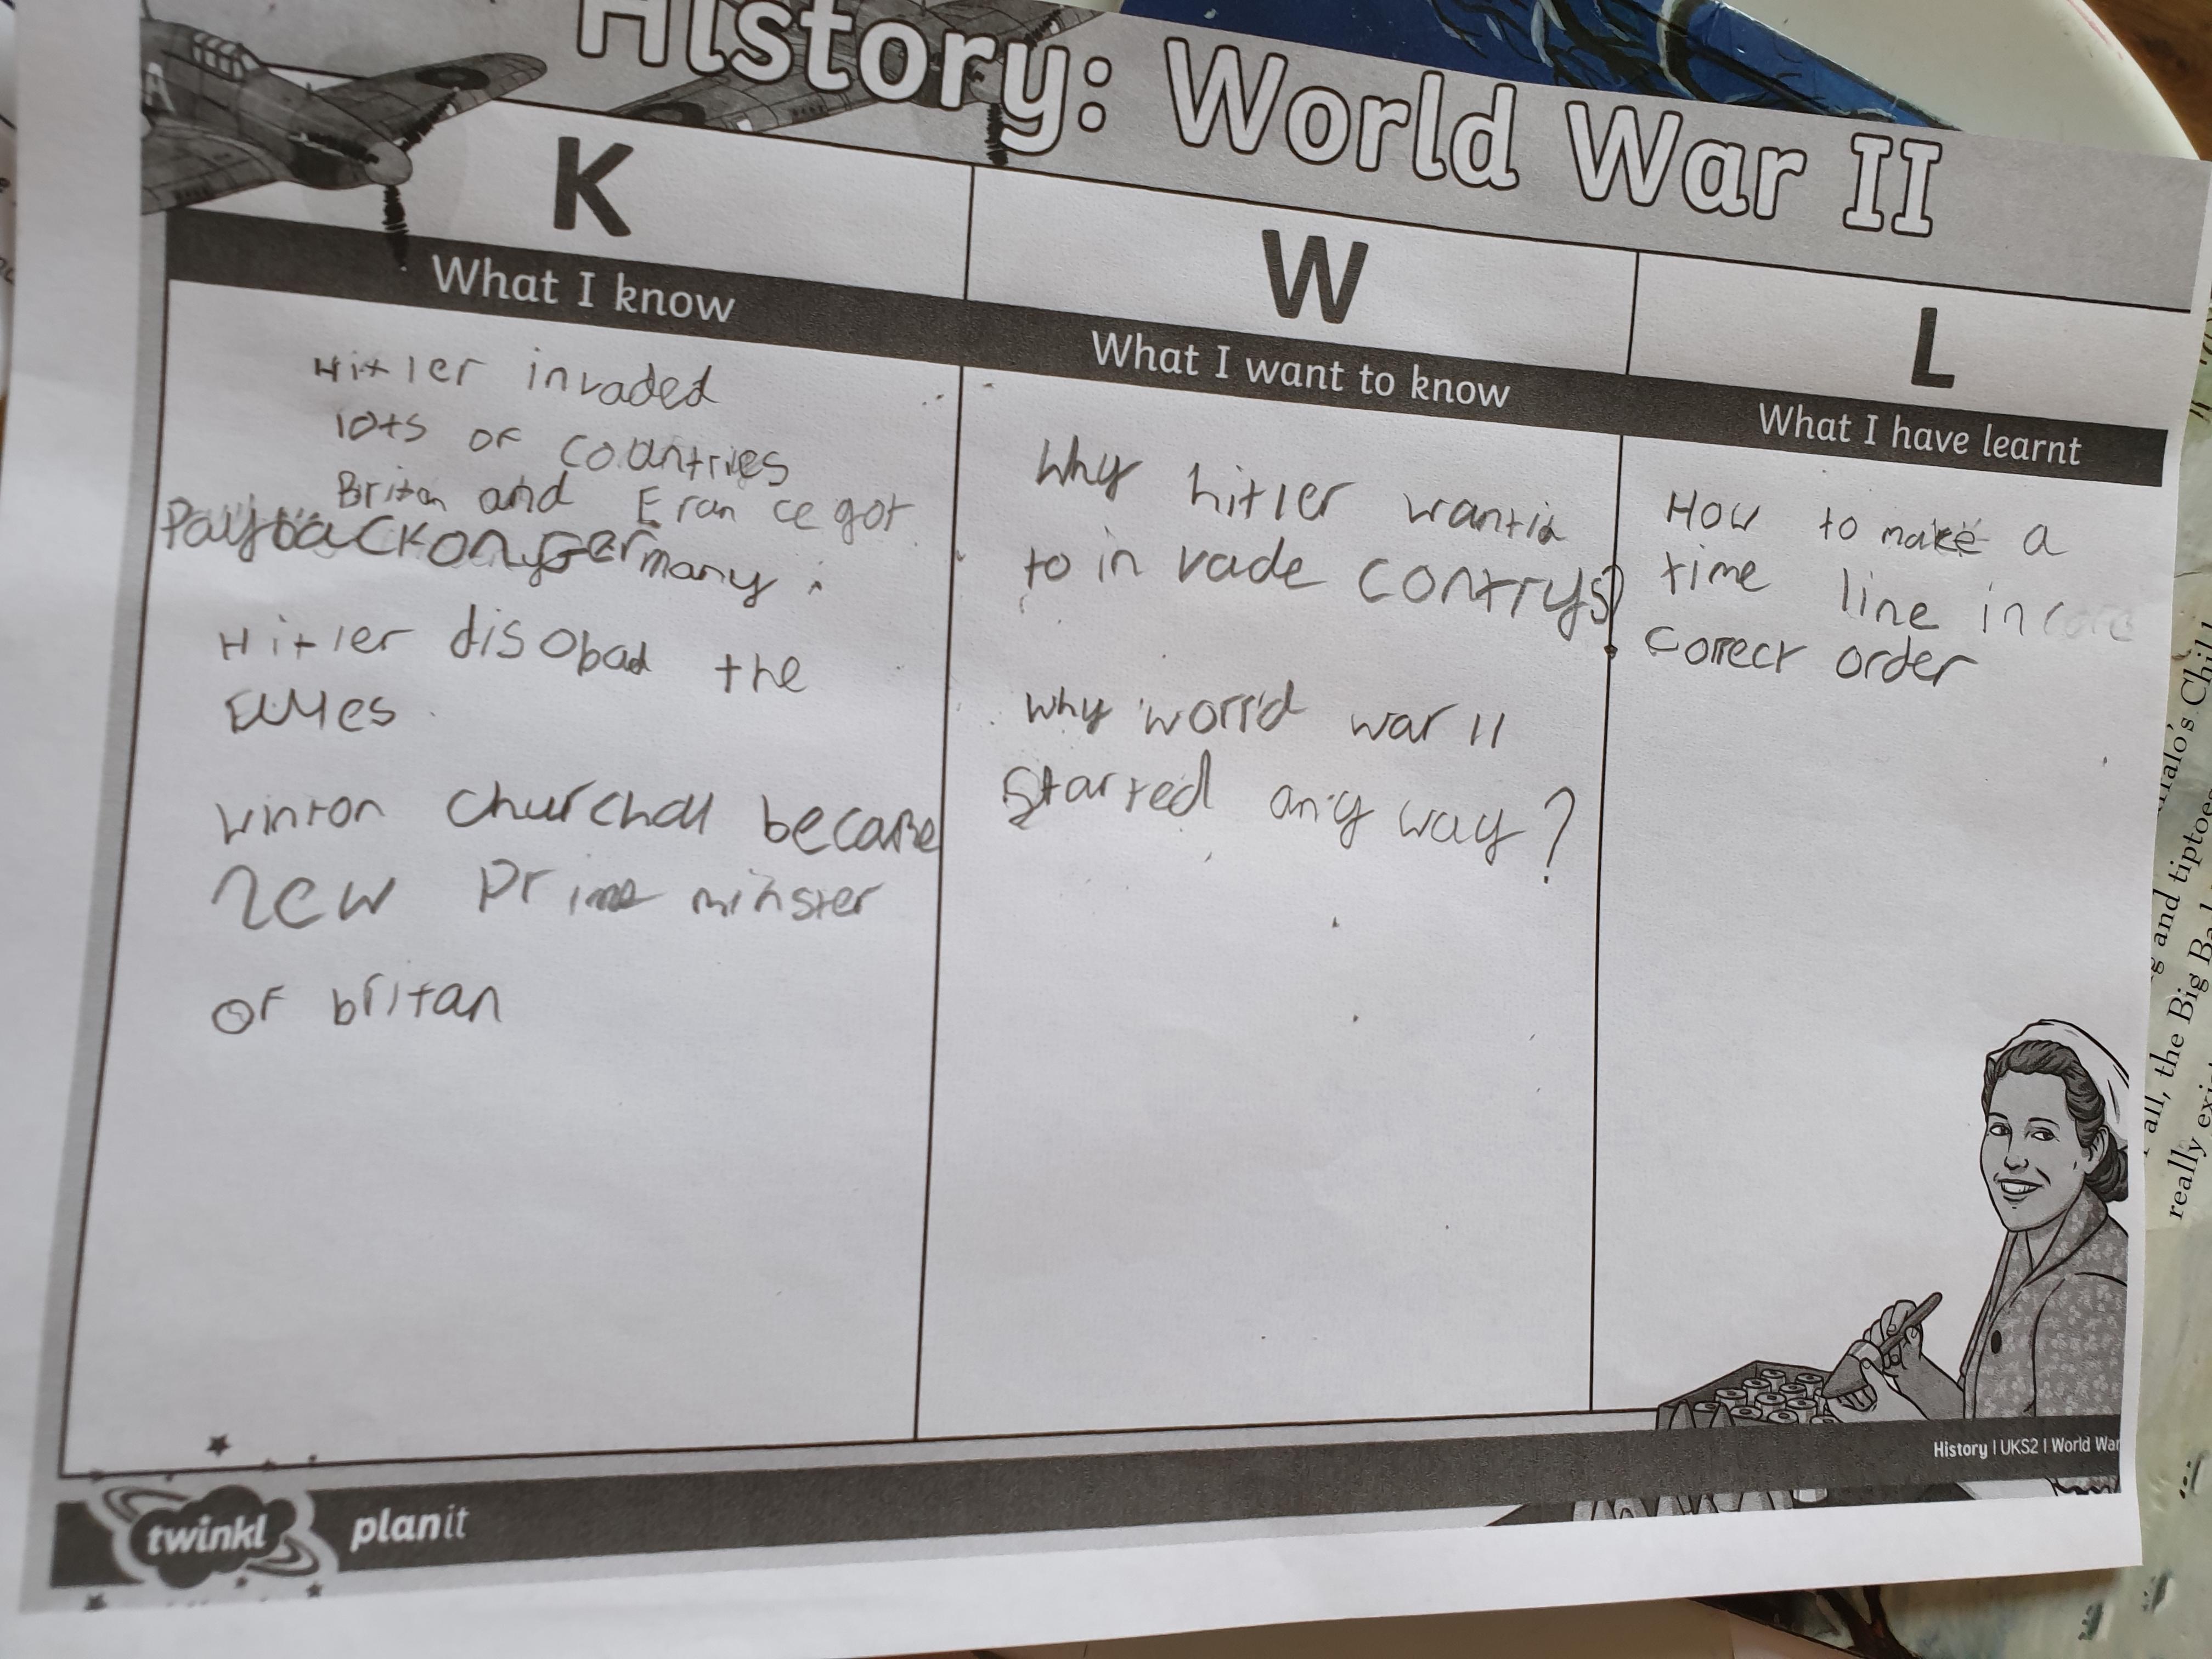 History: World War II
K
What I know
Hitler invaded
lots of countries
Britan and Erance got
Payback on Germany
Hitler disobad the
winton Churchall became
new Prime minster
of britan
W
What I want to know
Why hitler wantid
to in vade contrys?
why world war II
Started any way?
L
What I have learnt
How to make a
time line in
correct order
History | UKS2 | World War
twinkl planit
and tiptoes
all, the Big Ba
really exis